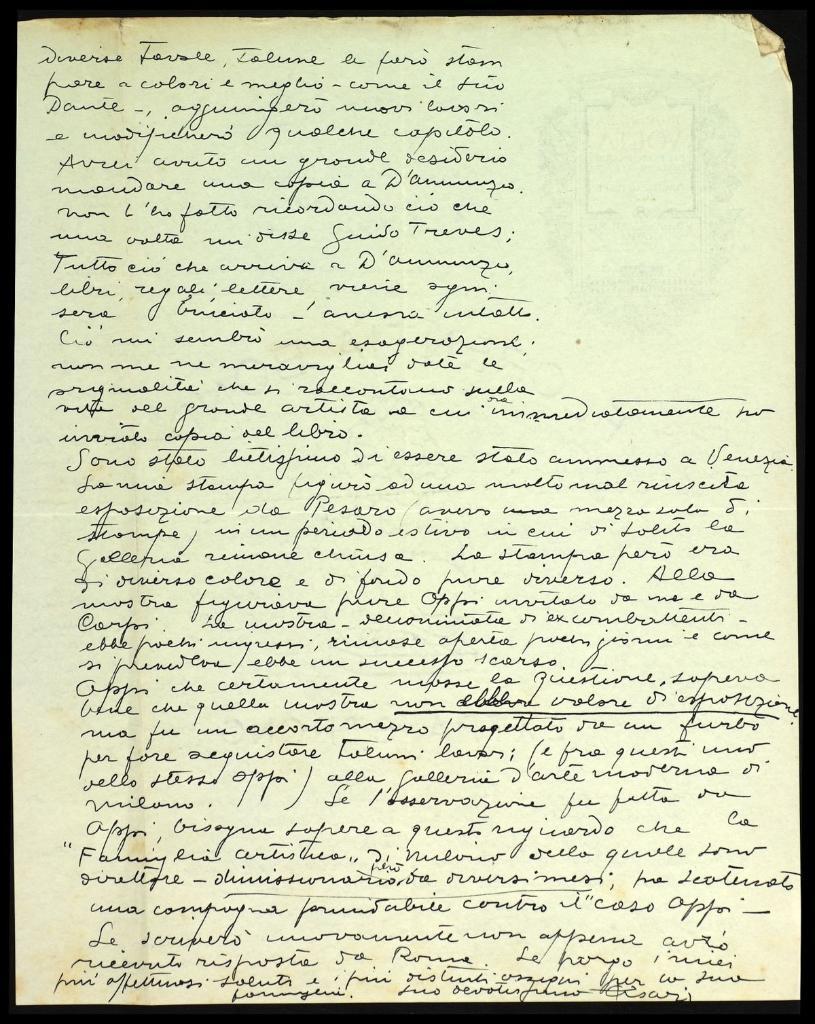 diverse tavole, talune le farò stam
pare a colori e meglio - come il suo
Dante -, aggiungerò nuovi lavori
e modificherò qualche capitolo.
Avrei avuto un grande desiderio
mandare una copia a D'Annunzio.
non l'ho fatto ricordando ciò che
una volta mi disse Guido Treves;
Tutto ciò che arriva a D'Annunzio,
libri, regali, lettere viene ogni
sera bruciato - ancora intatto.
Ciò mi sembrò una esagerazione;
non me ne meraviglia date le
originalità che si raccontano sulla
vita del grande artista a cui ora immediatamente ho
inviato copia del libro.
Sono stato lietissimo di essere stato ammesso a Venezia.
La mia stampa figurò ad una molto mal riuscita
esposizione da Pesaro (avevo una mezza sala di
stampe) in un periodo estivo in cui di solito la
Galleria rimane chiusa. La stampa però era
di diverso colore e di fondo pure diverso. Alla
mostra figurava pure Oppi invitato da me e da
Carpi. La mostra - denominata di ex combattenti -
ebbe pochi ingressi, rimase aperta pochi giorni e come
si prevedeva ebbe un successo scarso.
Oppi che certamente mosse la questione, sapeva
bene che quella mostra non valore di esposizione
ma fu un accorto mezzo progettato da un furbo
per fare acquistare taluni lavori; (e fra questi uno
dello stesso Oppi) alla Galleria d'arte moderna di
Milano. Se l'osservazione fu fatta da
Oppi, bisogna sapere a questo riguardo che la
"Famiglia artistica" di Milano della quale sono
direttore - dimissionario però da diversi mesi, ha scatenato
una campagna formidabile contro il "caso Oppi -
Le scriverò nuovamente non appena avrò
ricevuto risposta da Roma. Le porgo i miei
più affettuosi saluti e i più distinti ossequi per la sua
famiglia. Suo devotissimo Disertori